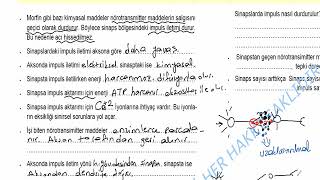 Morfin gibi bazı kimyasal maddeler nörotransmitter maddelerin salgısını
geçici olarak durdurur. Böylece sinaps bölgesindeki impuls iletimi durur.
Bu nedenle acı hissedilmez.
Sinapslardaki impuls iletimi aksona göre daha yavaş
Aksonda impuls iletimi elektriksel, sinaptaki ise kimyasal
Aksonda impuls iletilirken enerji harcanmaz.
Sinapsta impuls aktarımı için enerji ATP harcanır.
Sinapsta impuls aktarımı için Ca²⁺ iyonlarına ihtiyaç vardır. Bu iyonla-
rın eksikliği sinirsel sorunlara yol açar.
İşi biten nörotransmitter maddeler enzimlerle parçala
nır. Akson tarafından geri alınır.
Aksonda impuls iletim yönü sinapsta ise
Aksondan dendrite doğru
Sinapslarda impuls nasıl durdurulur?
Sinapstan geçen nörotransmitter
tepki
Sinaps sayısı arttıkça
uzaklaştırılmalı
HER HAKKI SAKLI